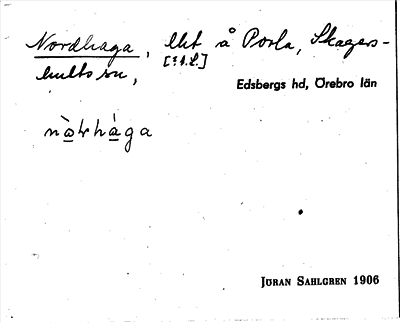 Nordhaga, lht å Porla, Skagers-
hults sn, [?.L.]
Edsbergs hd, Örebro län
nò̱rhàga
JÖRAN SAHLGREN 1906